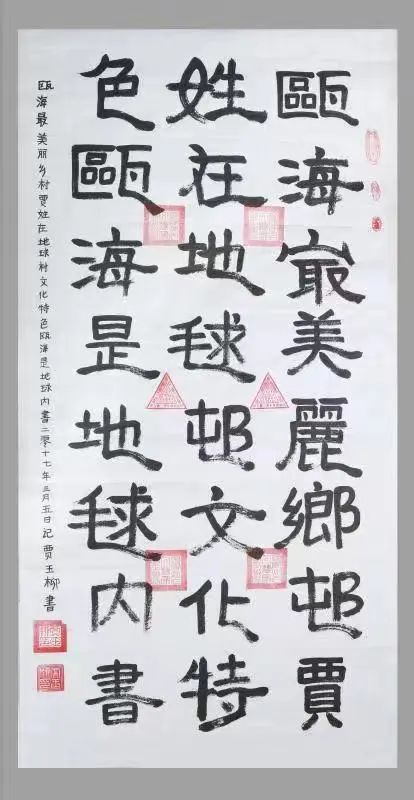 甌海最美麗鄉邨賈
姓在地毬邨文化特
色甌海是地毬内書
瓯海最美丽乡村贾姓在地球村文化特色瓯海是地球内書二零十七年三月五日记 贾玉柳書